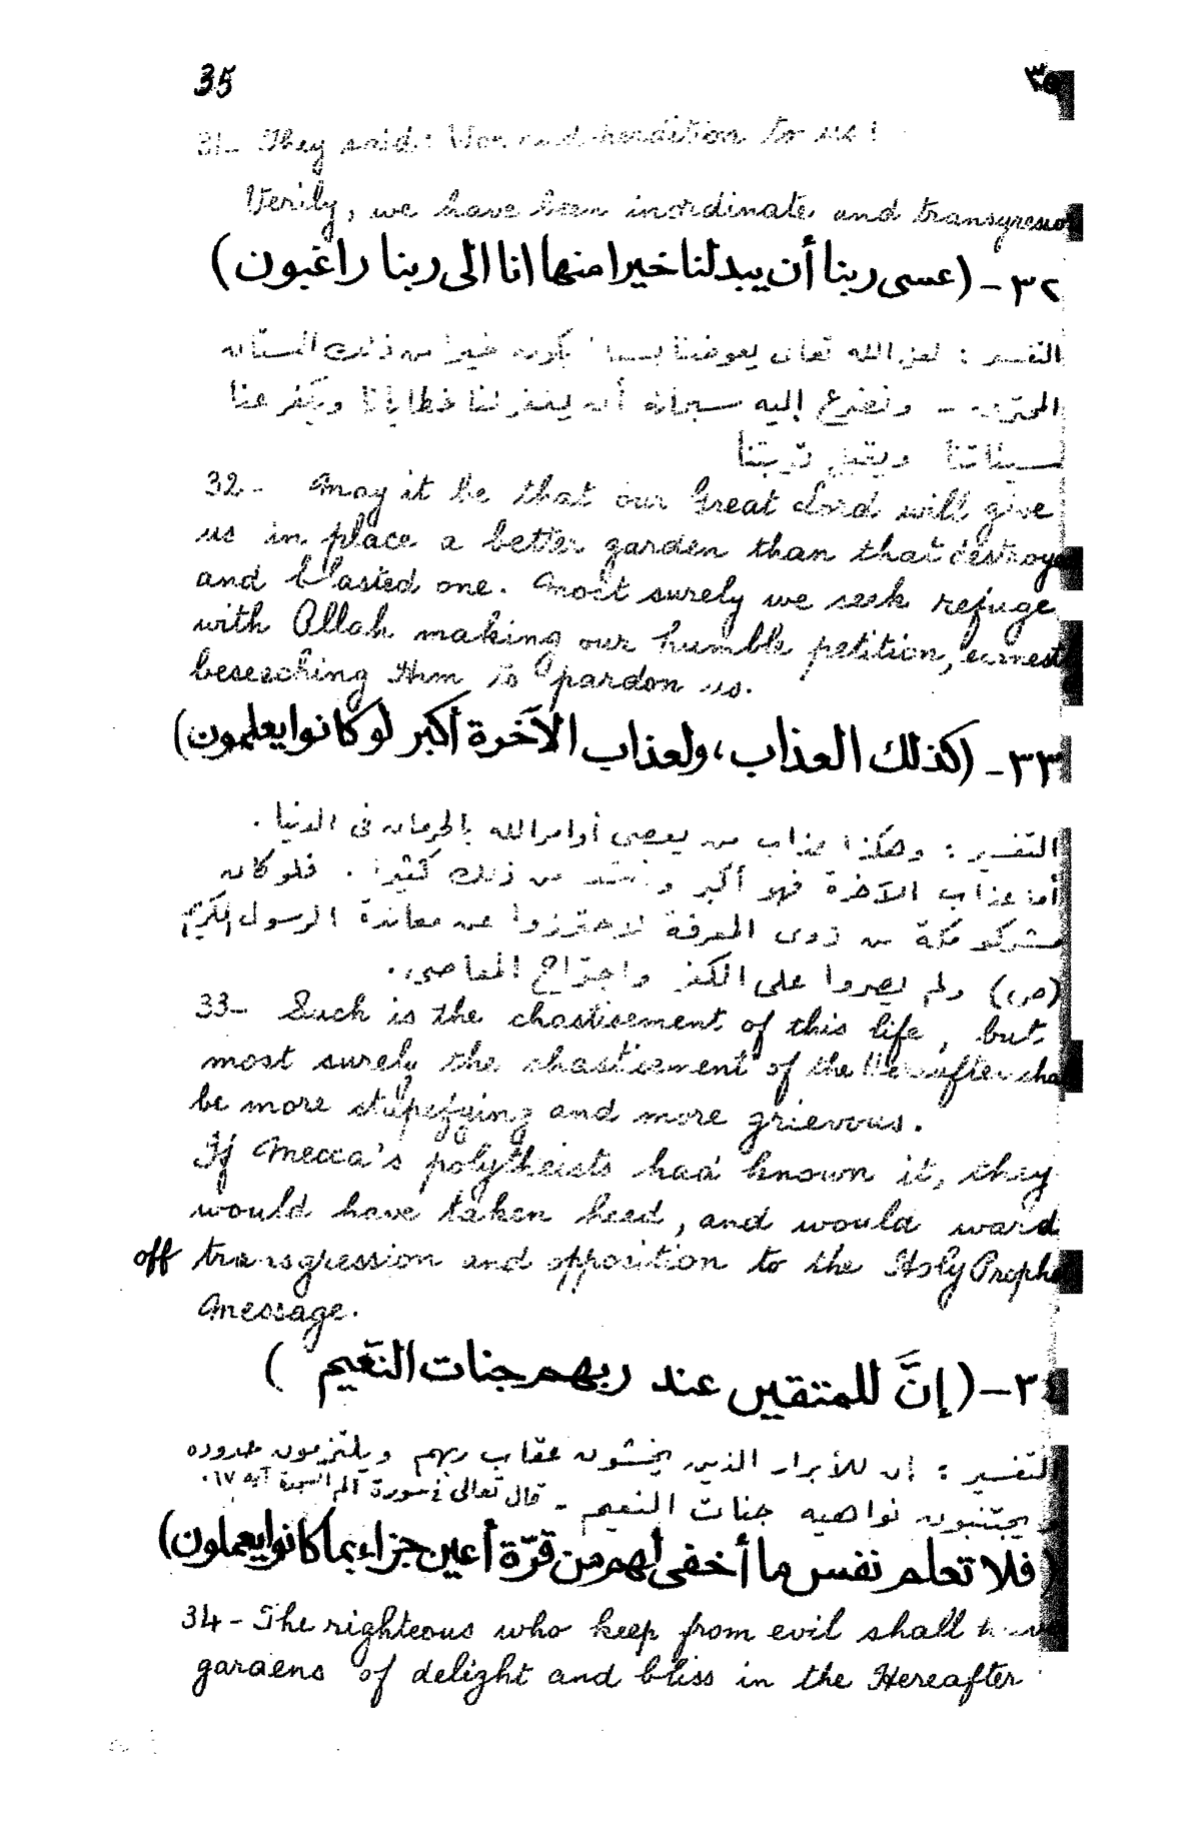 35 ٣٥
31- They said: Woe and perdition to us!
Verily, we have been inordinate and transgressor
٣٢- (عسى ربنا أن يبدلنا خيرا منها انا الى ربنا راغبون)
التفسير: لعل الله تعالى يعوضنا بستانا يكون خيرا من ذلك البستان
المحترق - ونضرع إليه سبحانه أن يغفر لنا خطايانا ويكفر عنا
سيئاتنا ويقبل توبتنا
32- May it be that our Great Lord will give
us in place a better garden than that destroye
and blasted one. Most surely we seek refuge
with Allah making our humble petition, earnest
beseeching Him to pardon us.
٣٣- (كذلك العذاب، ولعذاب الآخرة أكبر لو كانوا يعلمون)
التفسير: وهكذا عذاب من يعصى أوامر الله بالحرمان فى الدنيا.
أما عذاب الآخرة فهو أكبر وأشد من ذلك كثيرا. فلو كان
مشركو مكة من ذوى المعرفة لاحترزوا عن معاندة الرسول الكريم
(ص) ولم يصروا على الكفر واجتراح المعاصى.
33- Such is the chastisement of this life, but
most surely the chastisement of the Hereafter sha
be more stupefying and more grievous.
If Mecca's polytheists had known it, they
would have taken heed, and would ward
off transgression and opposition to the Holy Prophe
Message.
٣٤- (إنَّ للمتقين عند ربهم جنات النعيم)
التفسير: إن للأبرار الذين يخشون عقاب ربهم ويلتزمون حدوده
ويجتنبون نواهيه جنات النعيم - قال تعالى فى سورة الم السجدة آية ١٧.
(فلا تعلم نفس ما أخفى لهم من قرّة أعين جزاء بما كانوا يعملون)
34- The righteous who keep from evil shall have
gardens of delight and bliss in the Hereafter